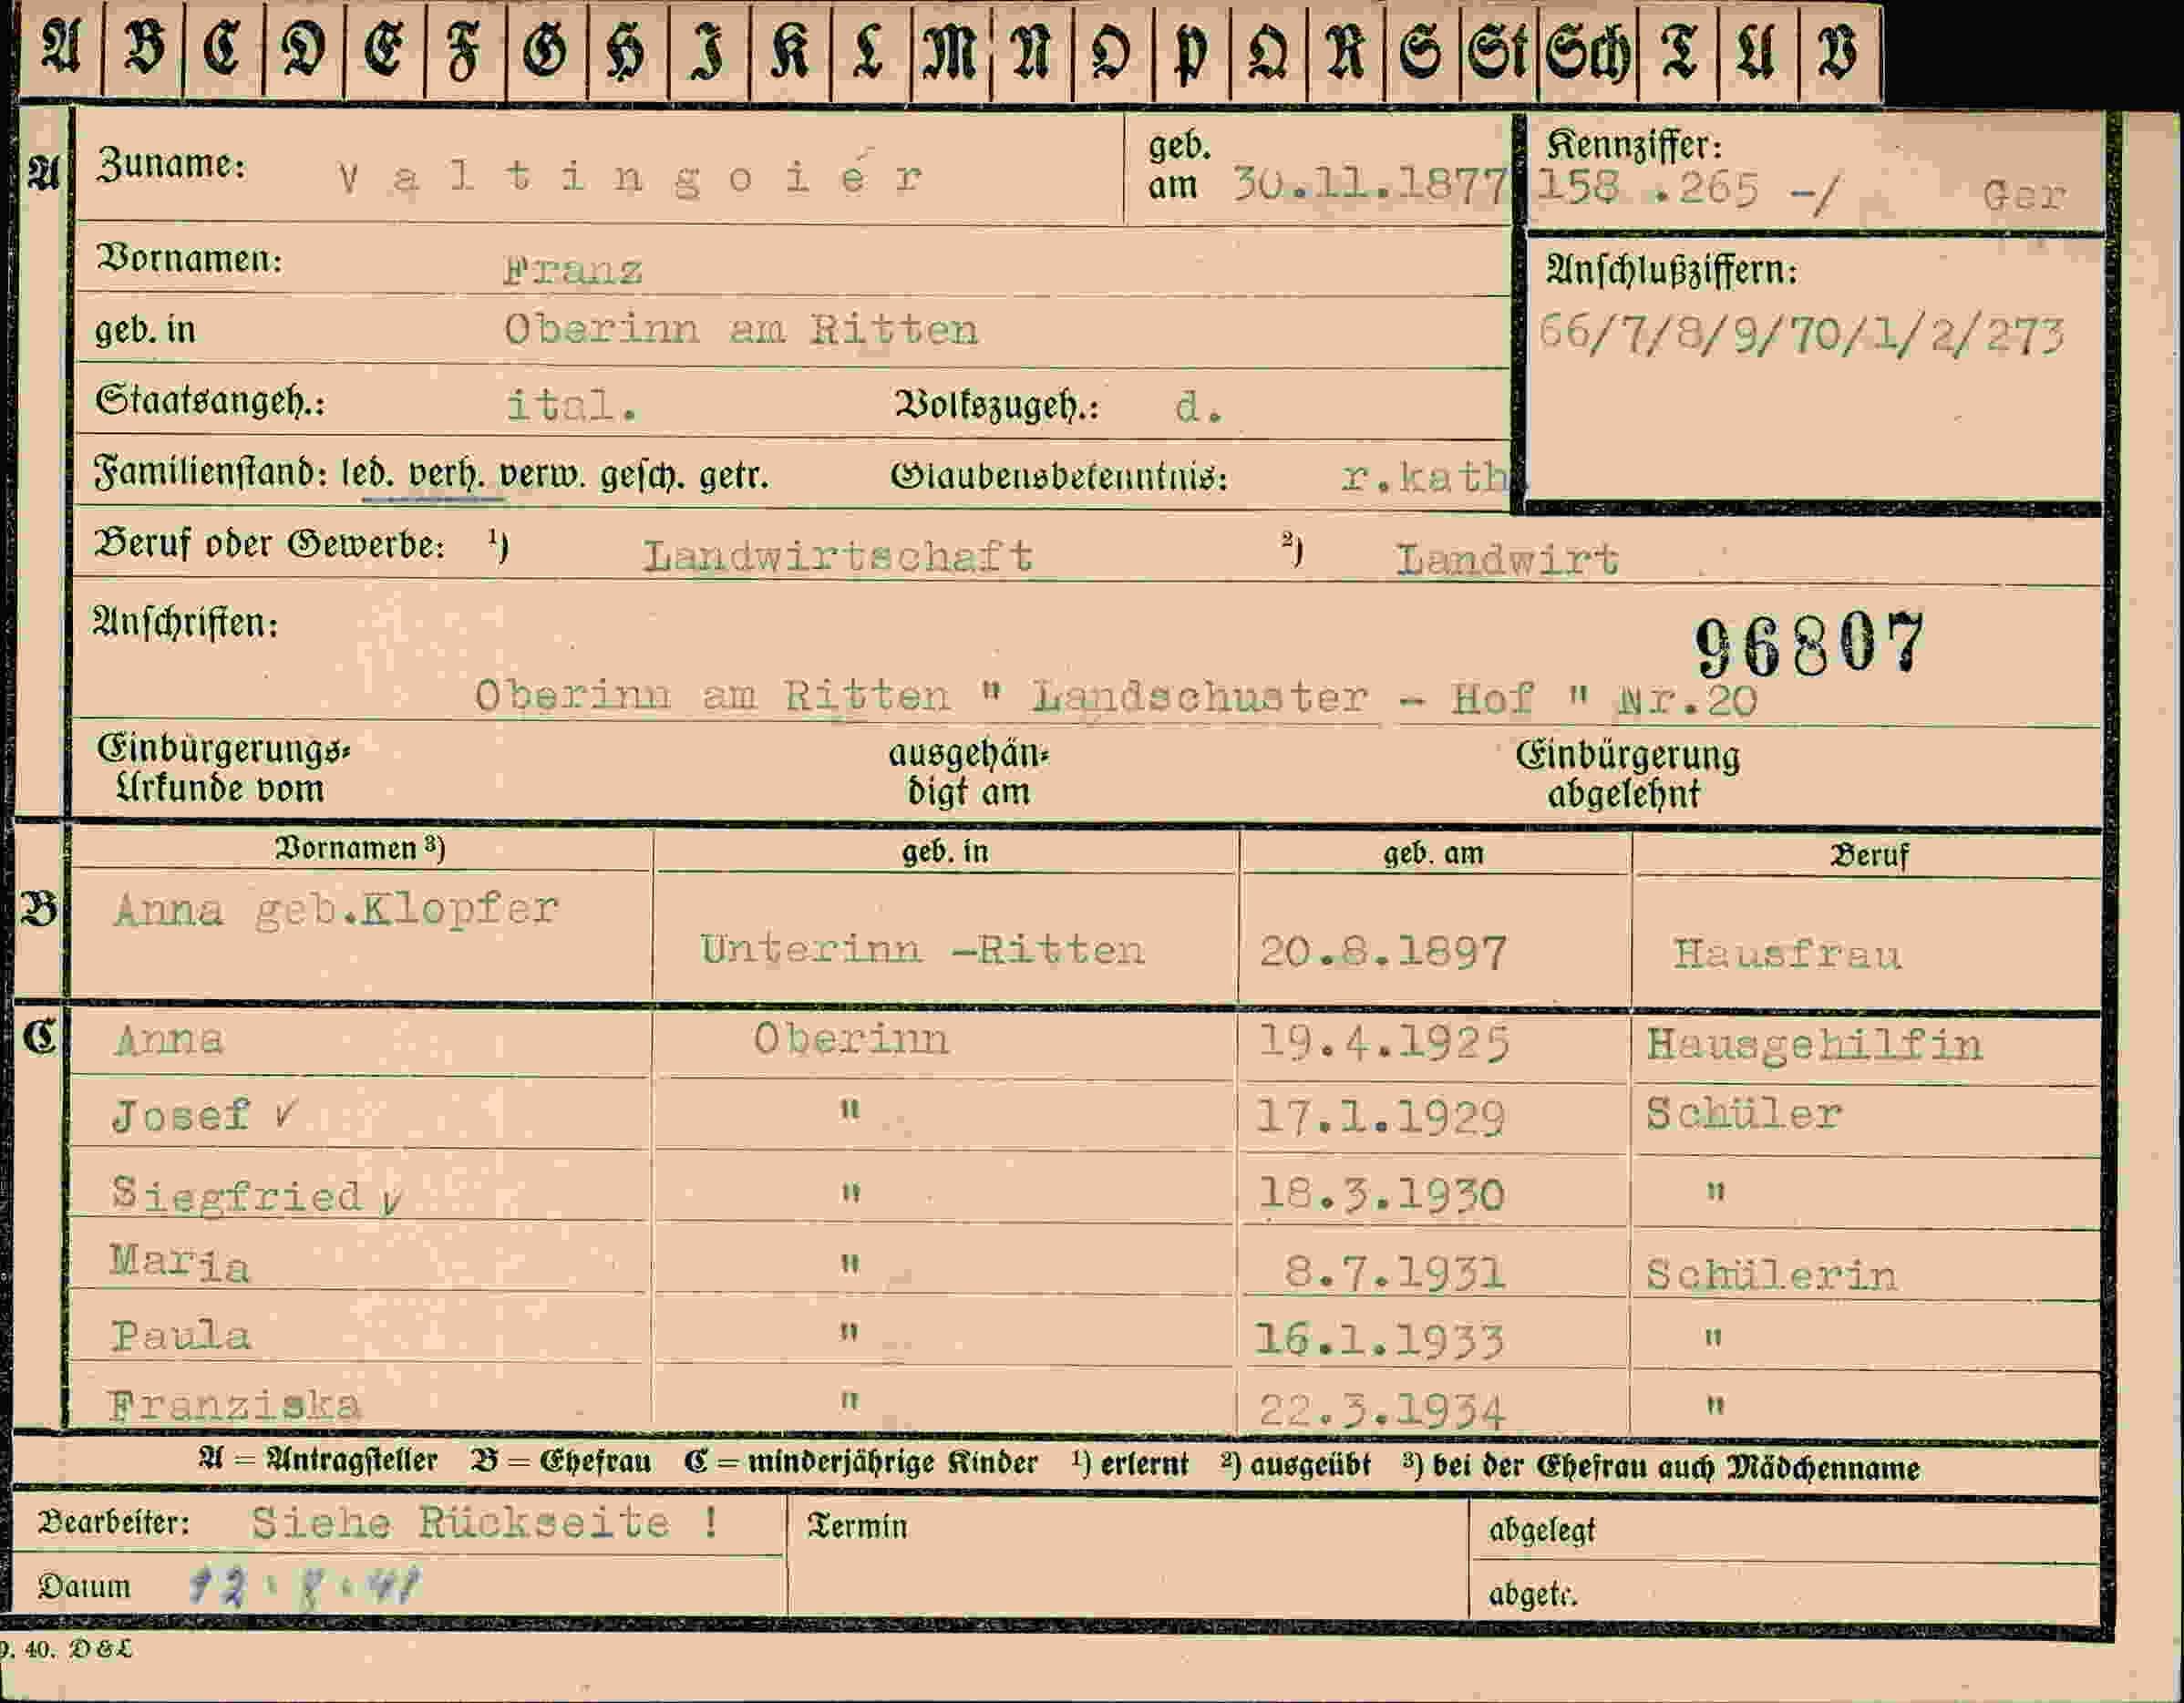 A B C D E F G H I K L M N O P Q R S St Sch T U V
A Zuname: V a l t i n g o i e r geb. am 30.11.1877 Kennziffer: 158 .265 -/ Ger
Vornamen: Franz
geb. in Oberinn am Ritten Anschlußziffern: 66/7/8/9/70/1/2/273
Staatsangeh.: ital. Volkszugeh.: d.
Familienstand: led. verh. verw. gesch. getr. Glaubensbekenntnis: r.kath
Beruf oder Gewerbe: ¹) Landwirtschaft ²) Landwirt
Anschriften: 96807
Oberinn am Ritten " Landschuster - Hof " Nr.20
Einbürgerungs- ausgehän- Einbürgerung
Urkunde vom digt am abgelehnt
Vornamen ³) geb. in geb. am Beruf
B Anna geb.Klopfer Unterinn -Ritten 20.8.1897 Hausfrau
C Anna Oberinn 19.4.1925 Hausgehilfin
Josef ✓ " 17.1.1929 Schüler
Siegfried ✓ " 18.3.1930 "
Maria " 8.7.1931 Schülerin
Paula " 16.1.1933 "
Franziska " 22.3.1934 "
A = Antragsteller B = Ehefrau C = minderjährige Kinder ¹) erlernt ²) ausgeübt ³) bei der Ehefrau auch Mädchenname
Bearbeiter: Siehe Rückseite ! Termin abgelegt
Datum 12.8.41 abgetr.
9. 40. D & L